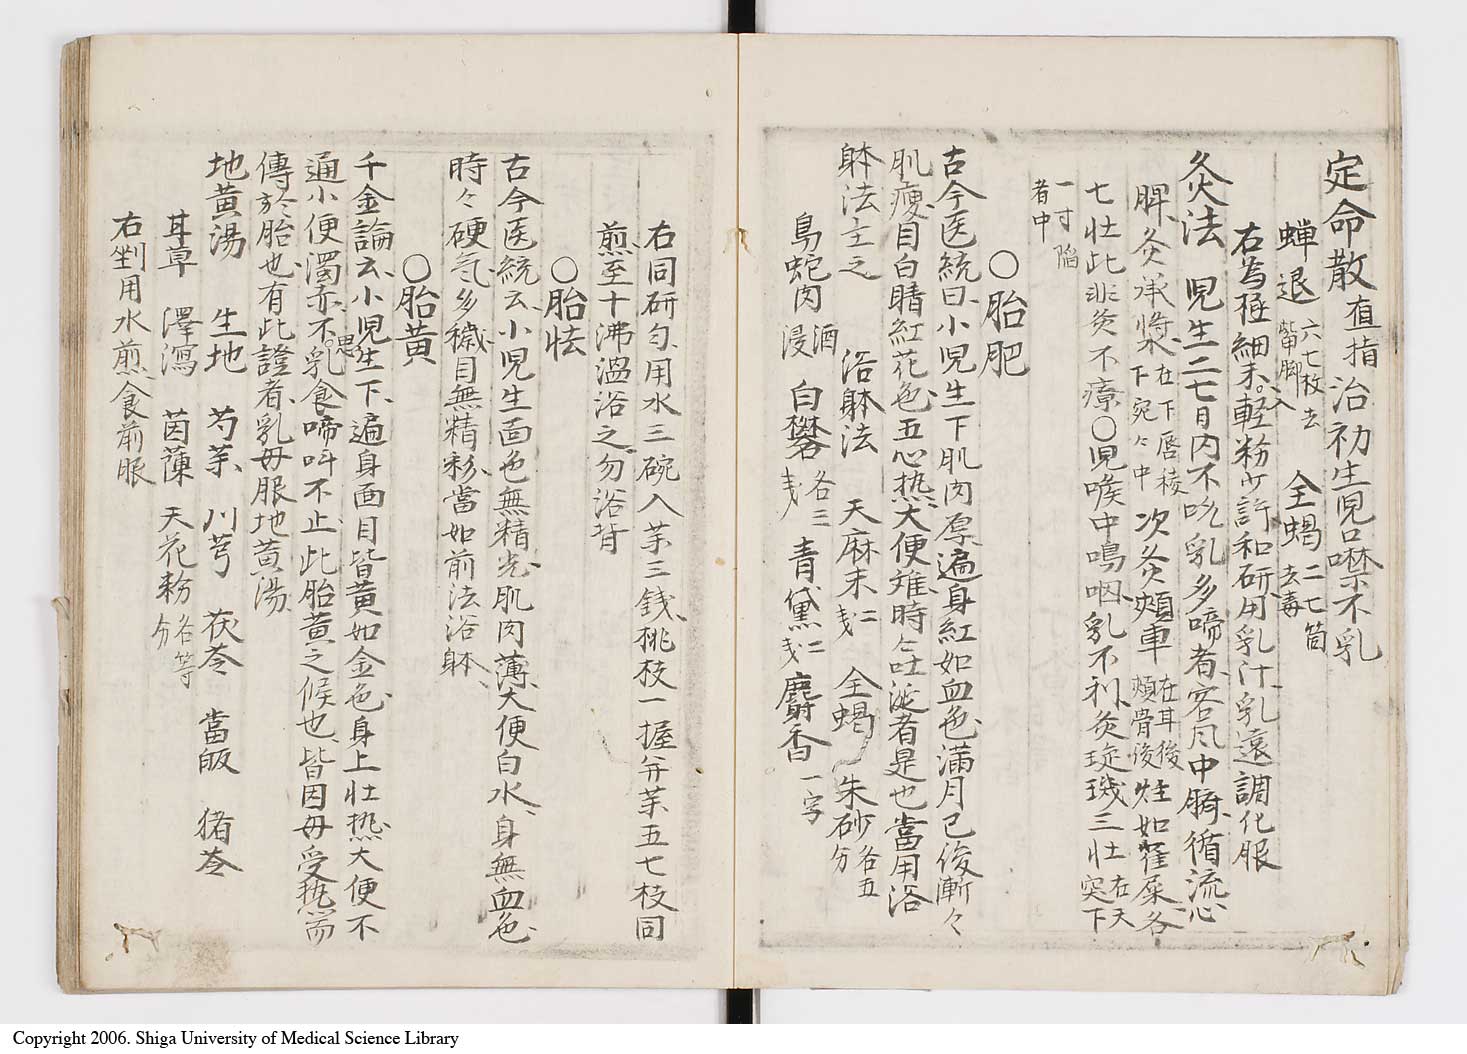 定命散 直指 治初生児口噤不乳
蝉退 六七枚去觜甲脚 全蝎 二七箇去毒
右為極細末入軽粉少許和研用乳汁乳遠調化服
灸法 児生二七日内不吮乳多啼者客凡中臍循流心
脾灸承漿 在下唇稜下宛々中 次灸頬車 在耳後頬骨後 炷如雀屎各
七壮此非灸不療○児喉中鳴咽乳不利灸璇璣三壮 在天突下
一寸陥者中
○胎肥
古今医統曰小児生下肌肉厚遍身紅如血色満月已後漸々
肌痩目白睛紅花色五心热大便难時々吐涎者是也當用浴
躰法主之
浴躰法 天麻末 二戔 全蝎 朱砂 各五分
烏蛇肉 酒浸 白礬 各三戔 青黛 二戔 麝香 一字
右同研匀用水三碗入茉三錢桃枝一握并茉五七枝同
煎至十沸温浴之勿浴背
○胎怯
古今医統云小児生面色無精光肌肉薄大便白水身無血色
時々硬氣多穢目無精彩當如前法浴躰
○胎黄
千金論云小児生下遍身面目皆黄如金色身上壮热大便不
通小便濁赤不思乳食啼叫不止此胎黄之候也皆因母受热而
傳於胎也有此證者乳母服地黄湯
地黄湯 生地 芍茉 川芎 茯苓 當皈 猪苓
耳草 澤瀉 茵蔯 天花粉 各等分
右剉用水煎食前服
Copyright 2006. Shiga University of Medical Science Library